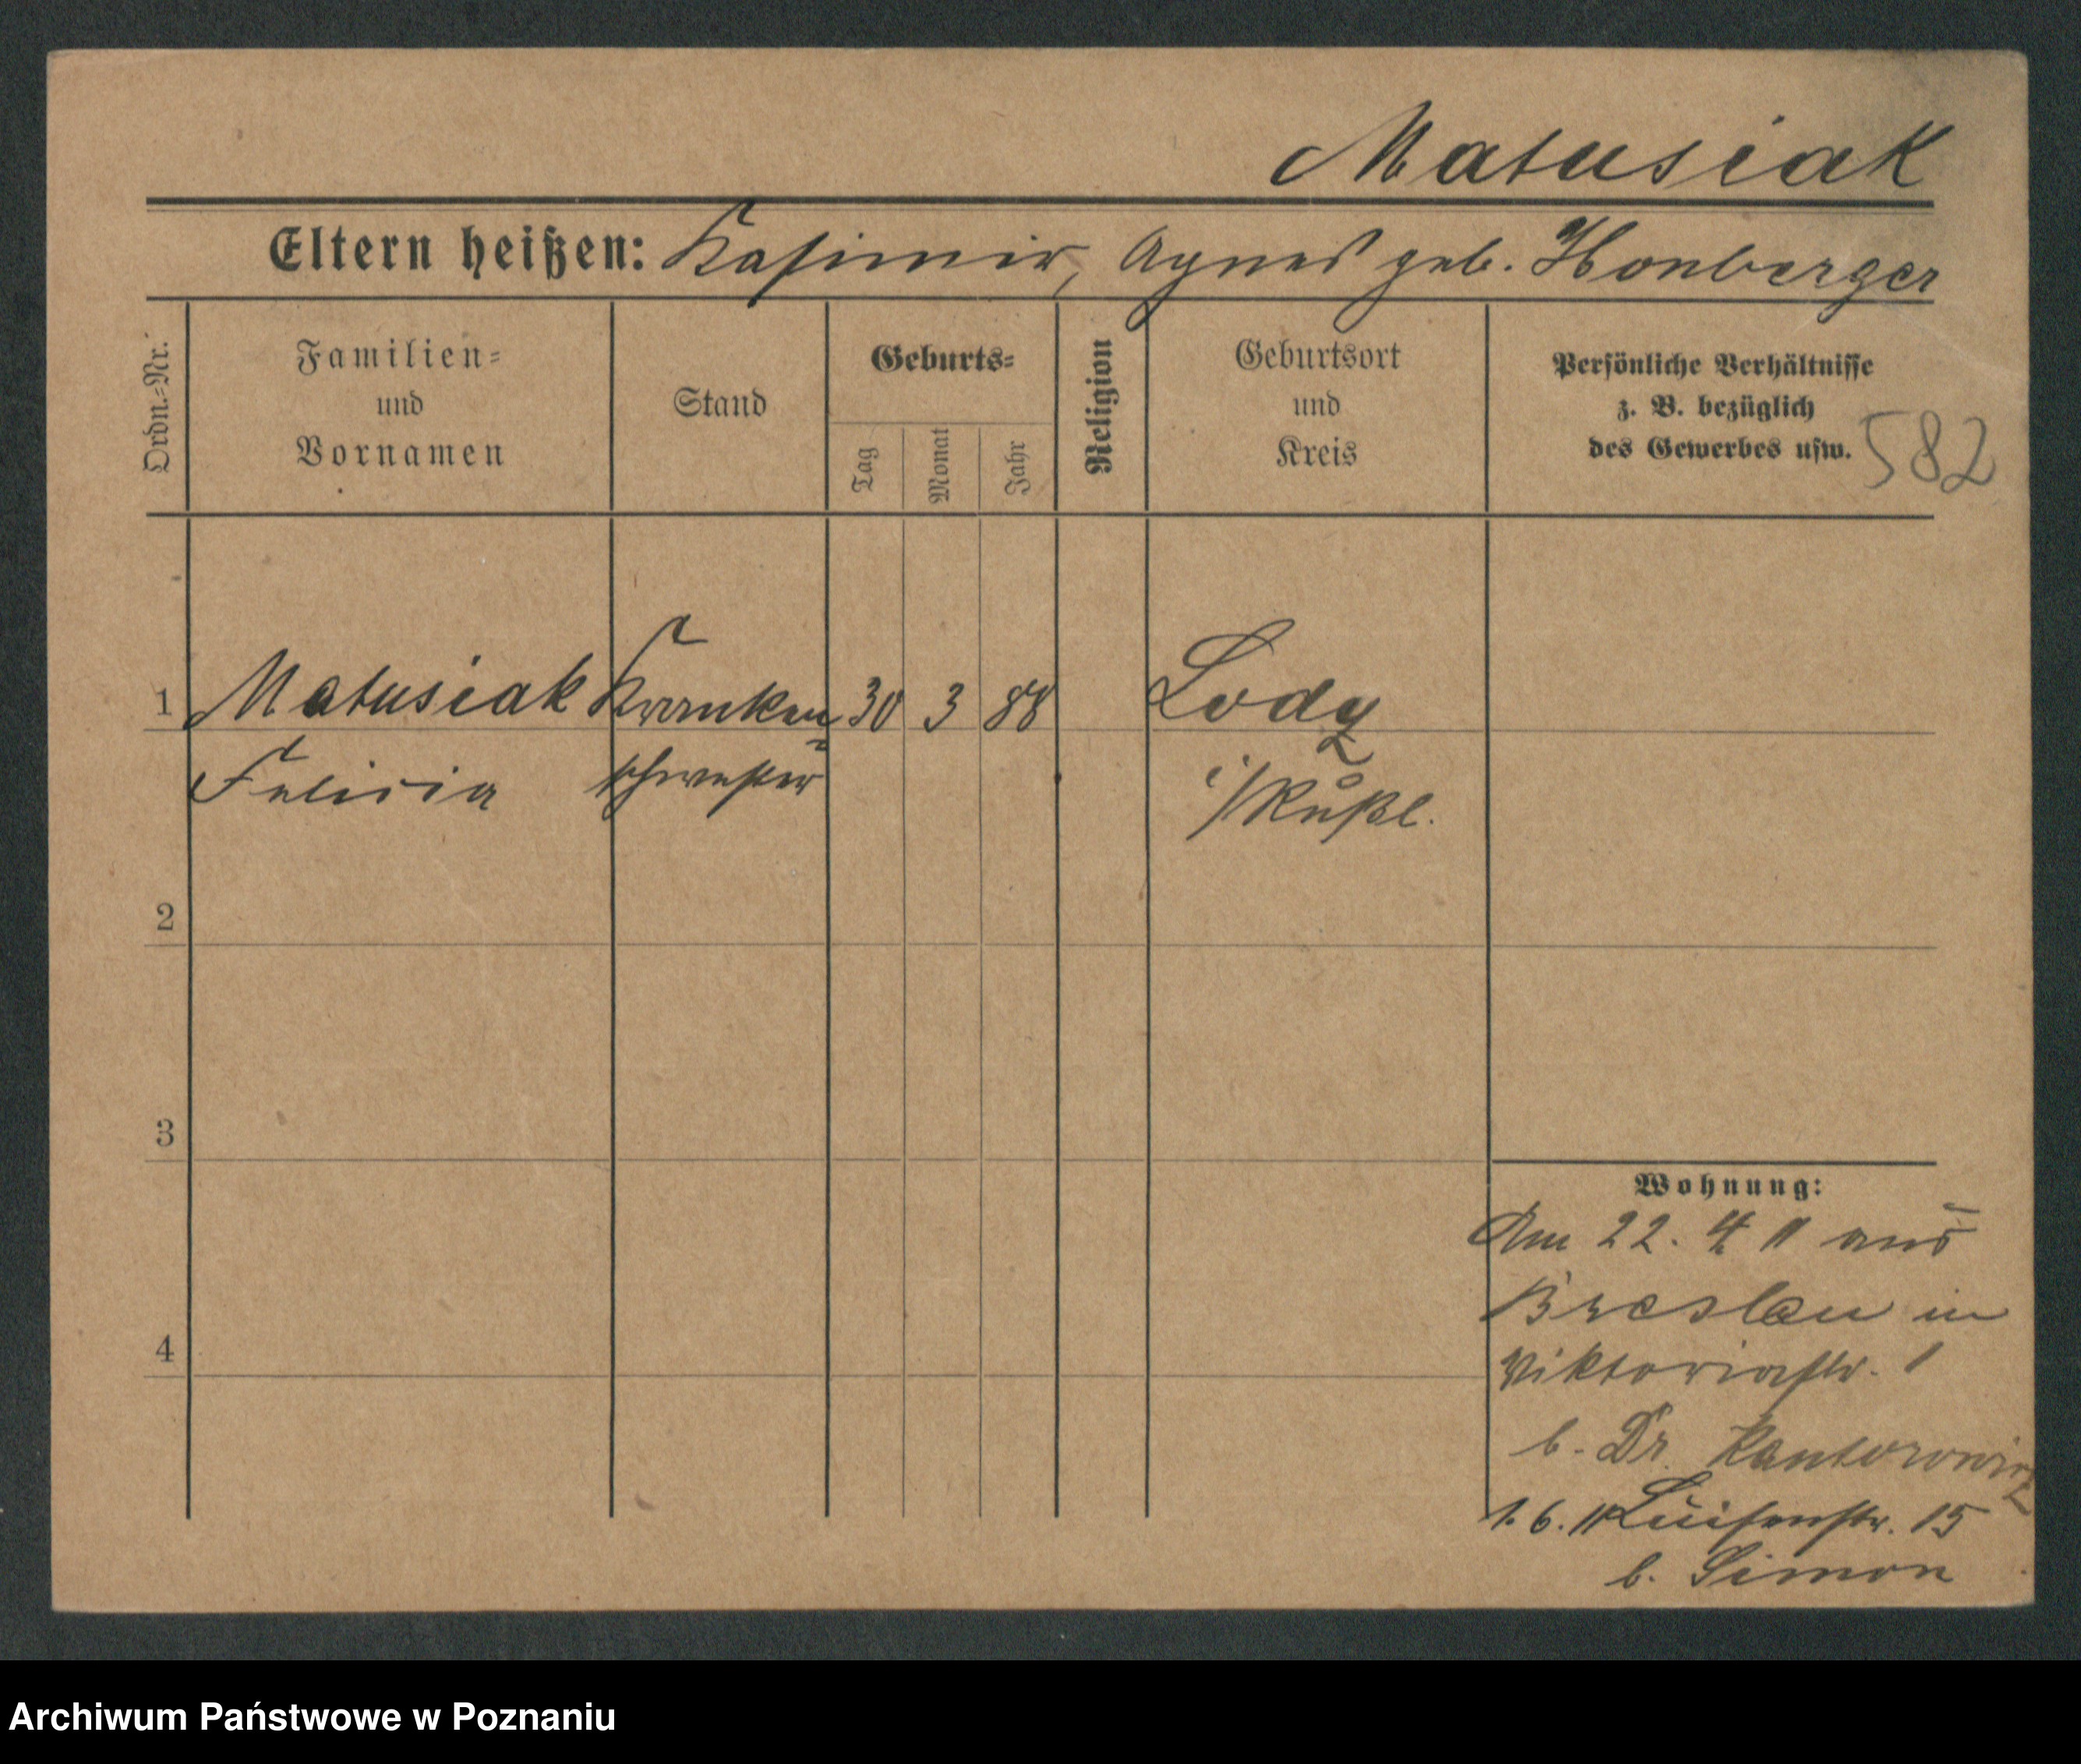 Matusiak
Eltern heißen: Kasimir, Agnes geb. Honberger
Ordn.-Nr.
Familien-
und
Vornamen
Stand
Geburts-
Tag
Monat
Jahr
Religion
Geburtsort
und
Kreis
Persönliche Verhältnisse
z. B. bezüglich
des Gewerbes usw.
582
1 Matusiak Kranken- 30 3 88 Lodz
Felicia schwester i/Rußl.
2
3
4
Wohnung:
Am 22. 4 11 aus
Breslau in
Viktoriastr. 1
b. Dr. Kantorowicz
1. 6. 11 Luisenstr. 15
b. Simon
Archiwum Państwowe w Poznaniu